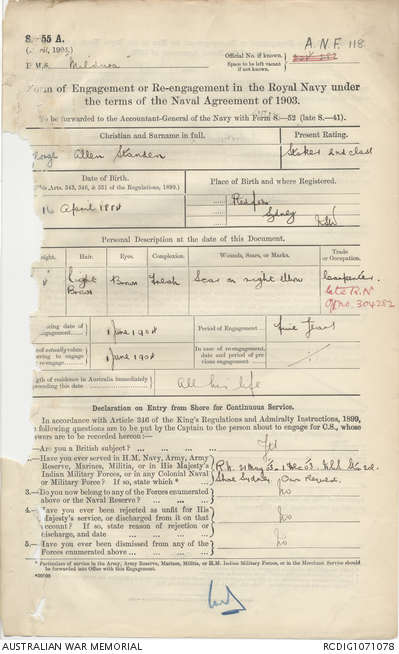 S.—55 A.
1903.)
A.N.F. 118
H.M.S. Mildura
Official No. if known.
Space to be left vacant if not known.
Form of Engagement or Re-engagement in the Royal Navy under
the terms of the Naval Agreement of 1903.
To be forwarded to the Accountant-General of the Navy with Form S.—52 (late S.—41).
Christian and Surname in full.
Present Rating.
Allen Standen
Stoker 2nd Class
Date of Birth.
Place of Birth and where Registered.
this Arts. 343, 346, & 351 of the Regulations, 1899.)
16 April 1884
Redfern
Sydney
NSW
Personal Description at the date of this Document.
Hair.
Eyes.
Complexion.
Wounds, Scars, or Marks.
Trade or Occupation.
Light Brown
Brown
Fresh
Scar on right elbow
Carpenter
late R.N
Off no. 304282
date of engagement
1 June 1904
Period of Engagement
five Years
actually
engage
1 June 1904
In case of re-engagement, date and period of previous engagement
length of residence in Australia immediately
preceding this date
All his life
Declaration on Entry from Shore for Continuous Service.
In accordance with Article 346 of the King's Regulations and Admiralty Instructions, 1899,
following questions are to be put by the Captain to the person about to engage for C.S., whose
answers are to be recorded hereon:—
Are you a British subject?
Yes
Have you ever served in H.M. Navy, Army, Army
Reserve, Marines, Militia, or in His Majesty's
Indian Military Forces, or in any Colonial Naval
or Military Force? If so, state which *
R.N.
Shore Sydney Own Request
3.—Do you now belong to any of the Forces enumerated
above or the Naval Reserve?
No
4.—Have you ever been rejected as unfit for His
Majesty's service, or discharged from it on that
account? If so, state reason of rejection or
discharge, and date
No
5.—Have you ever been dismissed from any of the
Forces enumerated above
No
* Particulars of service in the Army, Army Reserve, Marines, Militia, or H.M. Indian Military Forces, or in the Merchant Service should
be forwarded into Office with this Engagement.
AUSTRALIAN WAR MEMORIAL
RCDIG1071078